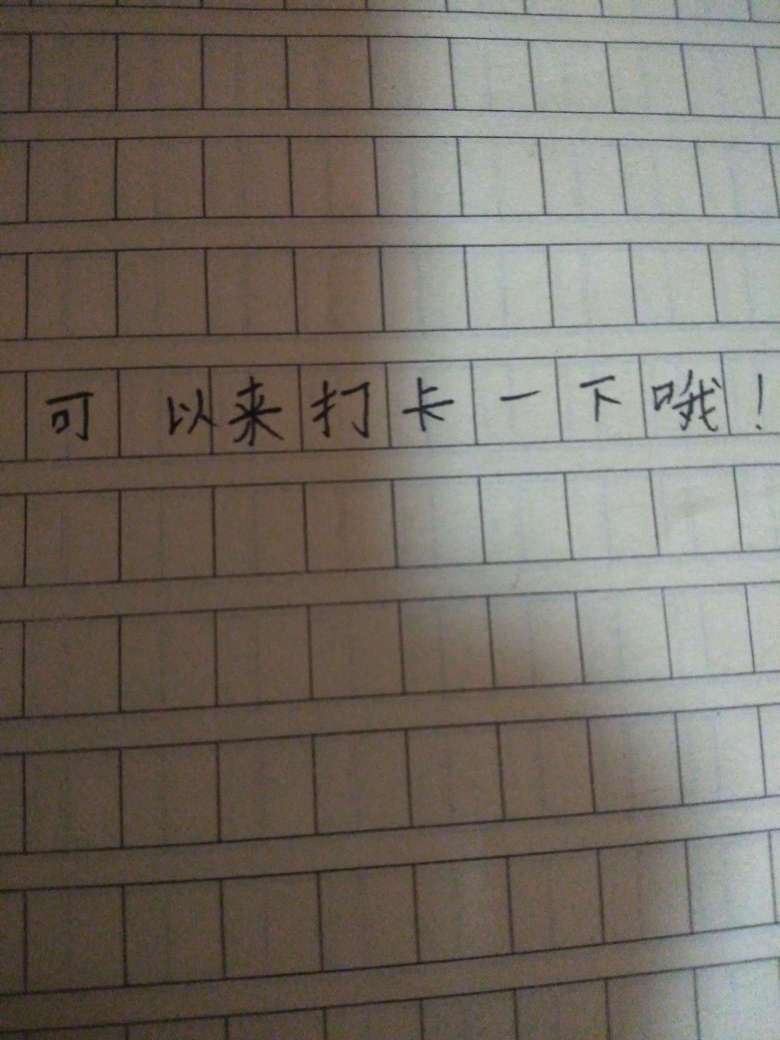 可以来打卡一下哦！